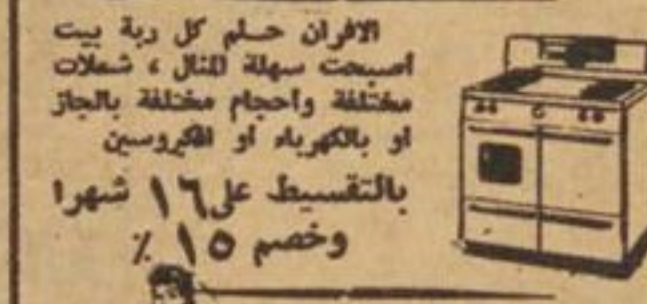 الافران حلم كل ربة بيت
أصبحت سهلة المنال ، شعلات
مختلفة وأحجام مختلفة بالجاز
أو بالكهرباء أو الكيروسين
بالتقسيط على ١٦ شهرا
وخصم ١٥ ٪